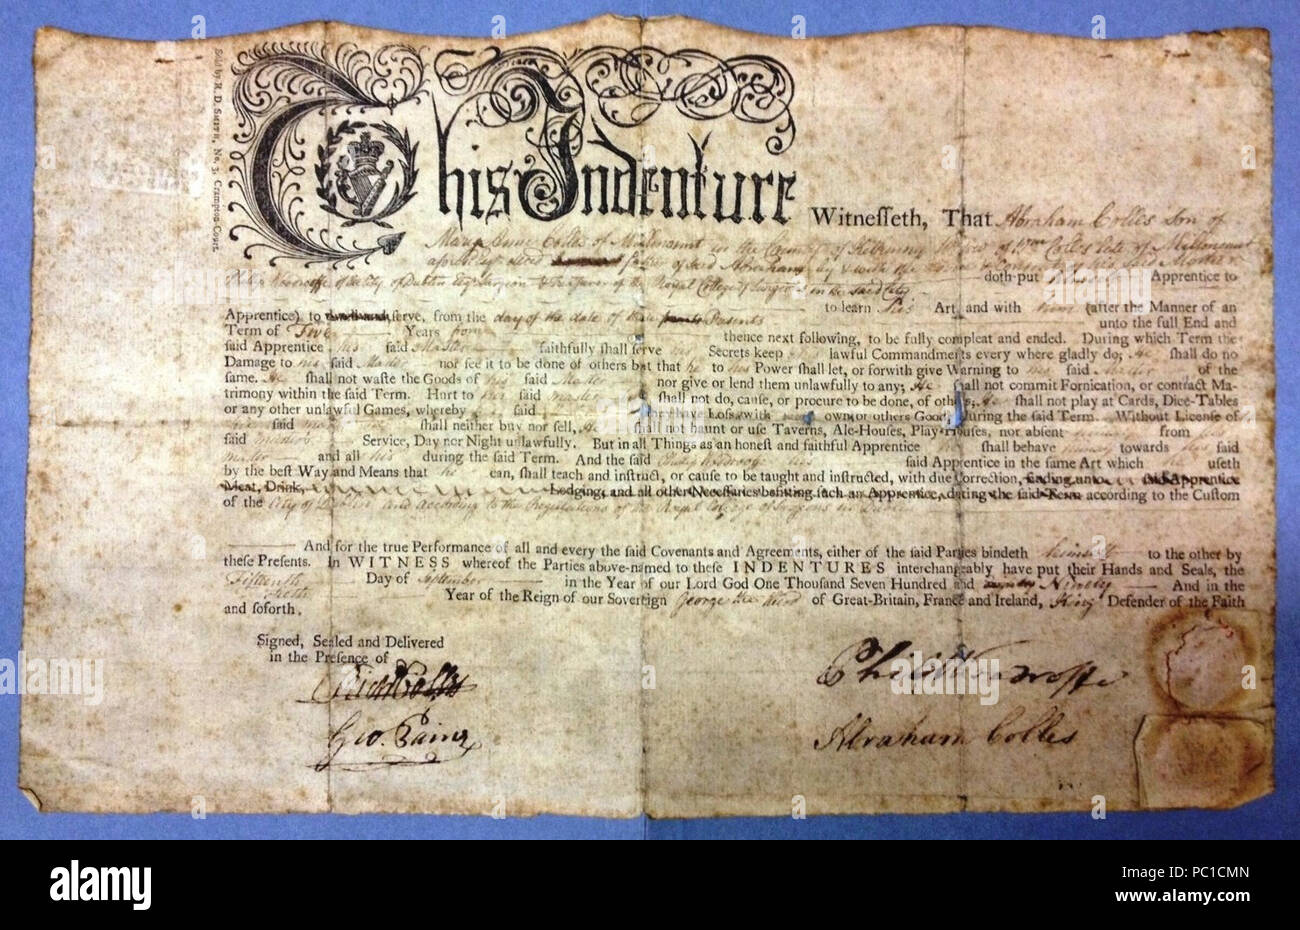 Sold by R. D. SMITH, No. 3, Crampton-Court.
This Indenture Witnesseth, That Abraham Colles Son of
Mary Anne Colles of Millmount in the County of Kilkenny Widow of Wm Colles late of Millmount
aforesaid father of said Abraham, by & with the of his said Mother
Philip Woodroffe of the City of Dublin Esqr Surgeon of the Royal College of Surgeons in the said City doth put himself Apprentice to
to learn his Art, and with him (after the Manner of an
Apprentice) to serve, from the day of the date of these Presents unto the full End and
Term of Five Years from thence next following, to be fully compleat and ended. During which Term the
said Apprentice his said Master faithfully shall serve his Secrets keep his lawful Commandments every where gladly do; He shall do no
Damage to his said Master nor see it to be done of others but that he to his Power shall let, or forwith give Warning to his said Master of the
same. He shall not waste the Goods of his said Master nor give or lend them unlawfully to any; He shall not commit Fornication, or contract Ma-
trimony within the said Term. Hurt to his said Master he shall not do, cause, or procure to be done, of others; He shall not play at Cards, Dice-Tables
or any other unlawful Games, whereby his said may have Loss with own or others Goods, during the said Term. Without License of
his said Master shall neither buy nor sell, He shall not haunt or use Taverns, Ale-Houses, Play-Houses, nor absent himself from his
said Master's Service, Day nor Night unlawfully. But in all Things as an honest and faithful Apprentice he shall behave himself towards his said
Master and all his during the said Term. And the said Philip Woodroffe his said Apprentice in the same Art which he useth
by the best Way and Means that he can, shall teach and instruct, or cause to be taught and instructed, with due Correction, finding unto said Apprentice
Meat, Drink, Lodging, and all other Necessaries befitting such an Apprentice, during the said Term according to the Custom
of the City of Dublin and according to the Regulations of the Royal College of Surgeons in Dublin
And for the true Performance of all and every the said Covenants and Agreements, either of the said Parties bindeth himself to the other by
these Presents. In WITNESS whereof the Parties above-named to these INDENTURES interchangeably have put their Hands and Seals, the
Fifteenth Day of September in the Year of our Lord God One Thousand Seven Hundred and Ninety And in the
Year of the Reign of our Sovereign George the third of Great-Britain, France and Ireland, King Defender of the Faith
and soforth.
Signed, Sealed and Delivered
in the Presence of
Philip Woodroffe
Richd Colles
Abraham Colles
Geo.
alamy
Image ID: PC1CMN
www.alamy.com